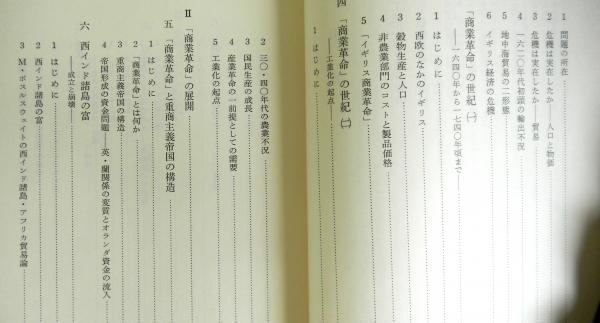 1 問題の所在
2 危機は実在したか——人口と物価
3 危機は実在したか——貿易
4 一六二〇年代初頭の輸出不況
5 地中海貿易の二形態
6 イギリス経済の危機
「商業革命」の世紀 ㈠
——一六四〇年から一七四〇年頃まで
1 はじめに
2 西欧のなかのイギリス
3 穀物生産と人口
4 非農業部門のコストと製品価格
5 「イギリス商業革命」
四 「商業革命」の世紀 ㈡
——工業化の起点——
1 はじめに
2 三〇・四〇年代の農業不況
3 国民生産の成長
4 産業革命の一前提としての需要
5 工業化の起点
II 「商業革命」の展開
五 「商業革命」と重商主義帝国の構造
1 はじめに
2 「商業革命」とは何か
3 重商主義帝国の構造
4 帝国形成の資金問題 英・蘭関係の変質とオランダ資金の流入
六 西インド諸島の富
——成立と崩壊——
1 はじめに
2 西インド諸島の富
3 M・ポスルスウェイトの西インド諸島・アフリカ貿易論